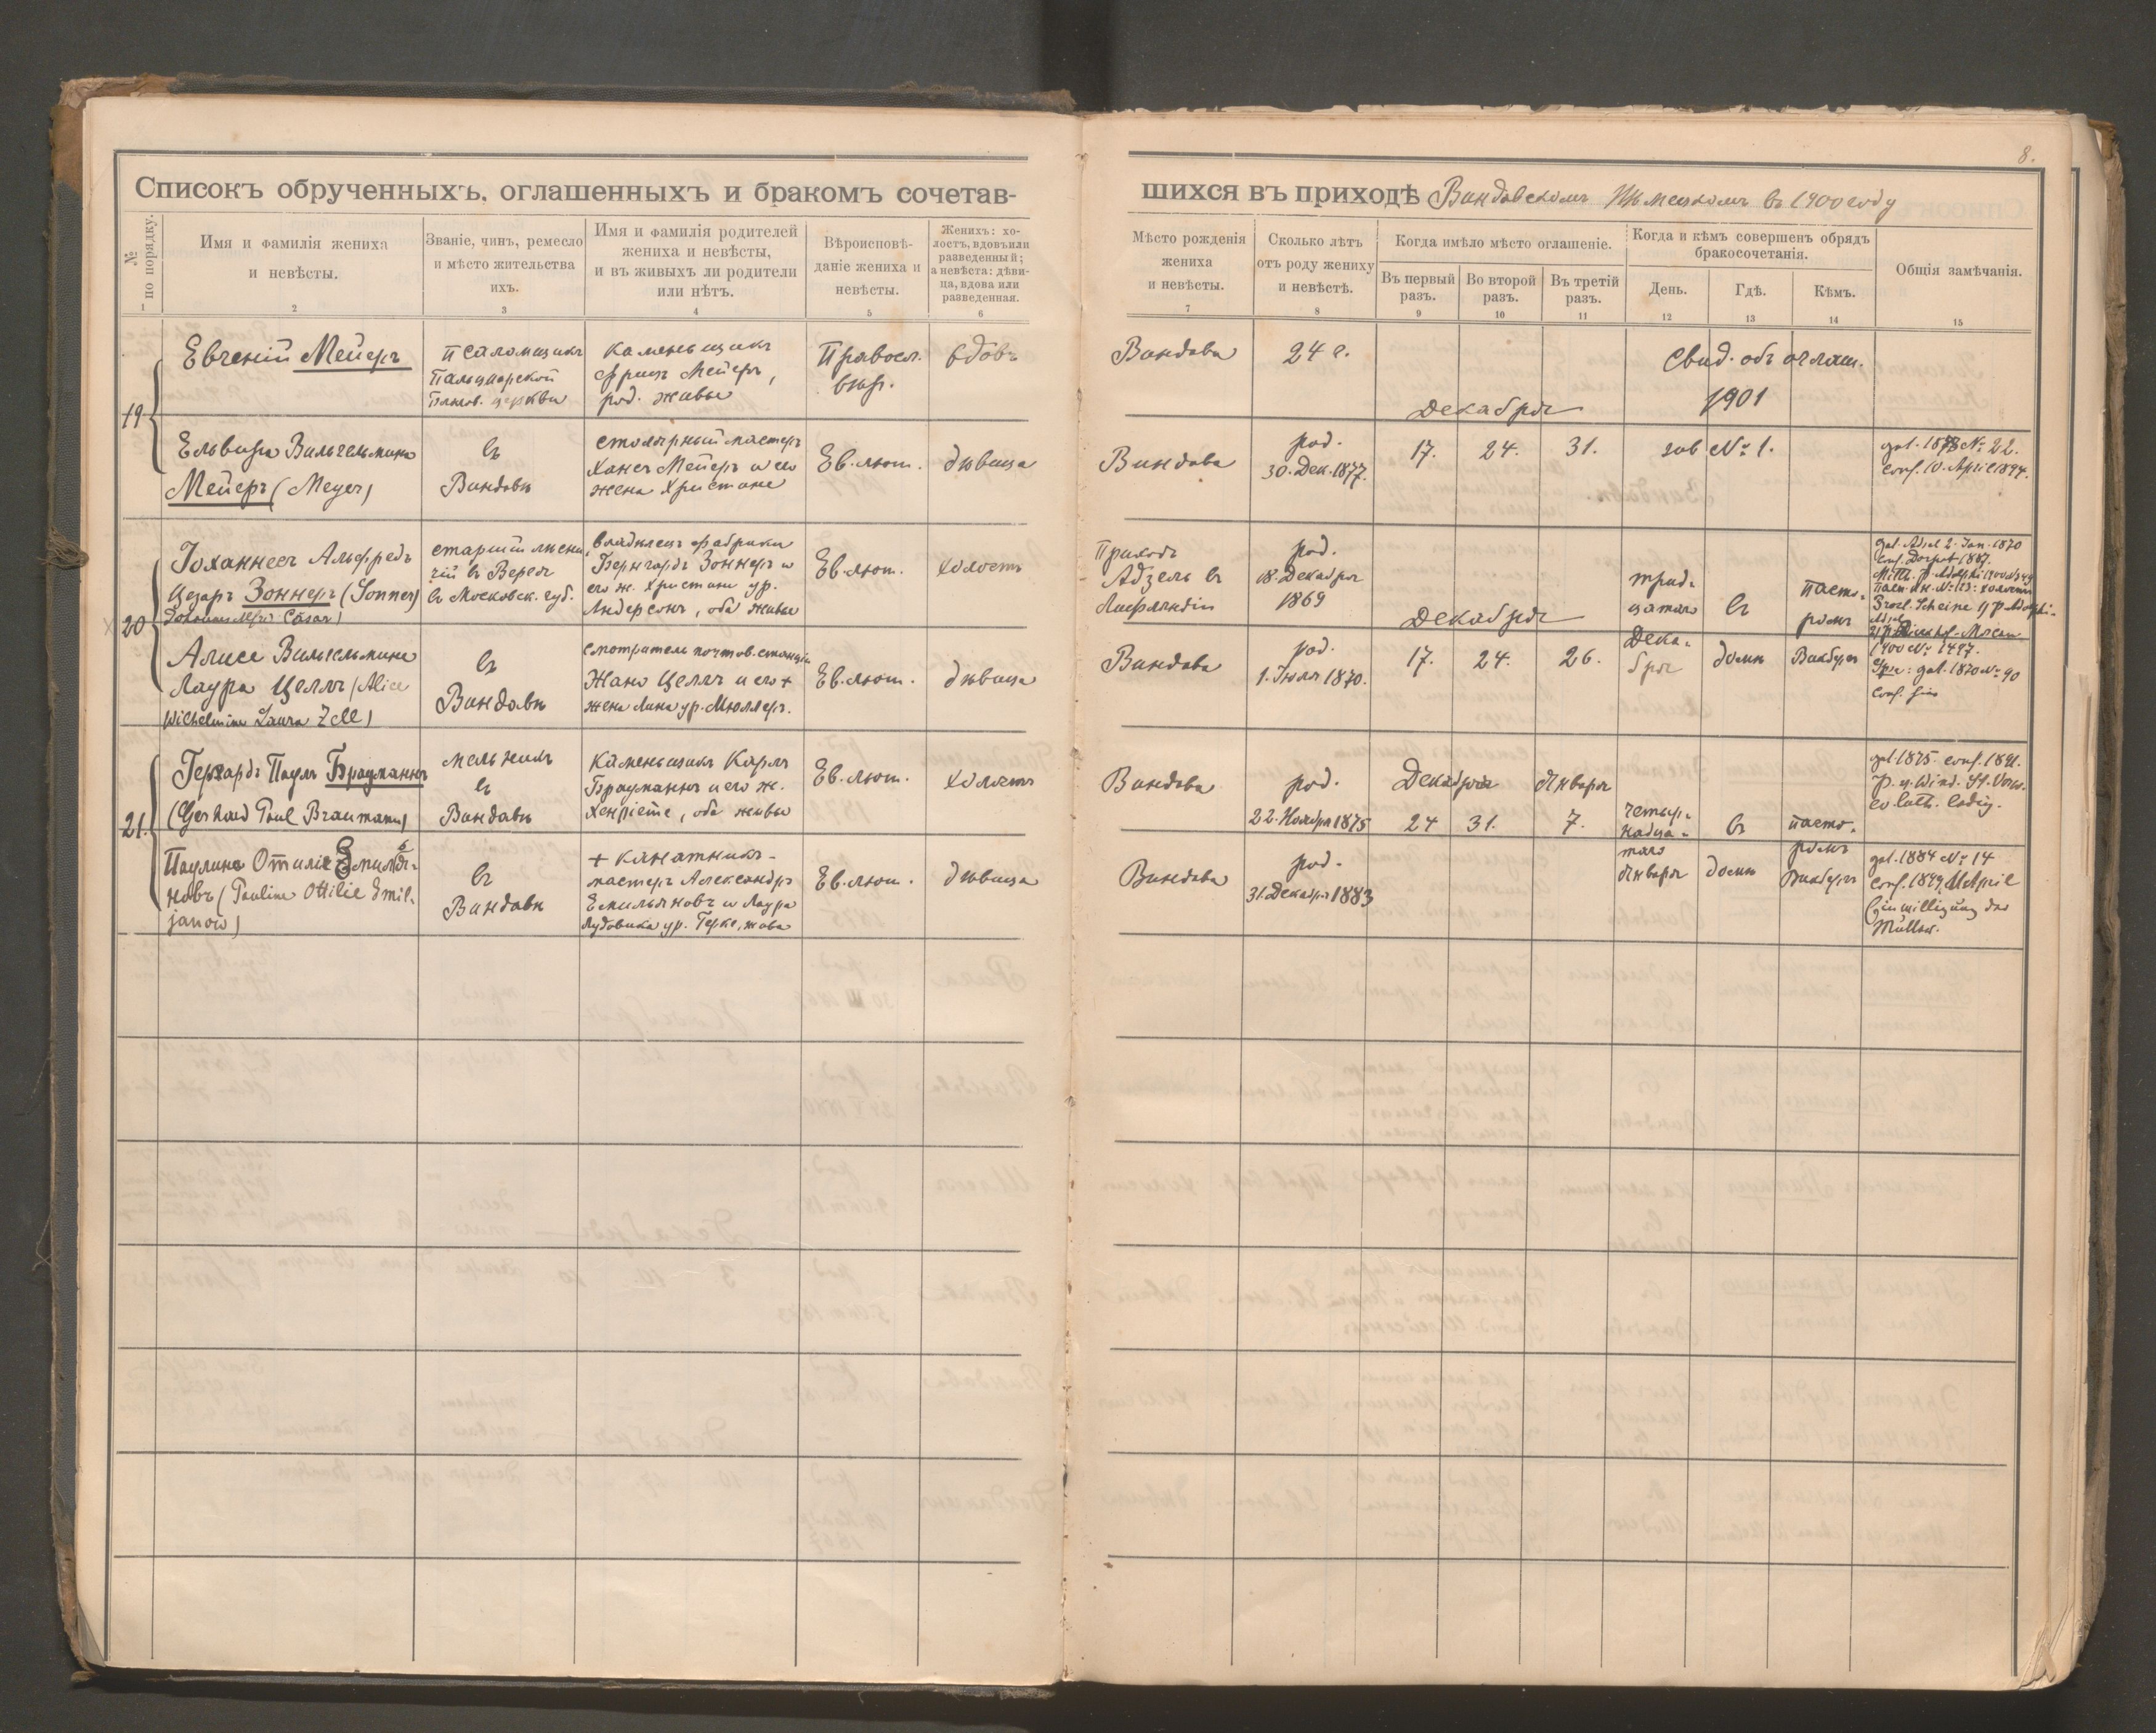 8.
Списокъ обрученныхъ, оглашенныхъ и бракомъ сочетав-
шихся въ приходѣ Виндавскомъ Нѣмецкомъ въ 1900 году
№ по порядку.
Имя и фамилія жениха
и невѣсты.
Званіе, чинъ, ремесло
и мѣсто жительства
ихъ.
Имя и фамилія родителей
жениха и невѣсты,
и въ живыхъ ли родители
или нѣтъ.
Вѣроисповѣ-
даніе жениха и
невѣсты.
Женихъ: хо-
лостъ, вдовъ или
разведенный;
а невѣста: дѣви-
ца, вдова или
разведенная.
1 2 3 4 5 6
Мѣсто рожденія
жениха
и невѣсты.
Сколько лѣтъ
отъ роду жениху
и невѣстѣ.
Когда имѣло мѣсто оглашеніе.
Въ первый
разъ.
Во второй
разъ.
Въ третій
разъ.
Когда и кѣмъ совершенъ обрядъ
бракосочетанія.
День.
Гдѣ.
Кѣмъ.
Общія замѣчанія.
7 8 9 10 11 12 13 14 15
19
Евгеній Мейеръ
псаломщикъ
Пальцмарской
церкви
каменьщикъ
Фрицъ Мейеръ,
род. живы
Правосл.
вѣр.
вдовъ
Виндава
24 г.
Декабря
Свид. объ оглаш.
1901
Ельвира Вильгельмина
Мейеръ (Meyer)
въ
Виндавѣ
столярный мастеръ
Хансъ Мейеръ и его
жена Христине
Ев. лют.
дѣвица
Виндава
род.
30. Дек. 1877.
17. 24. 31.
sub № 1.
gel. 1878 № 22.
conf. 10. April 1894.
20
Іоханнесъ Альфредъ
Цезаръ Зоннеръ (Sonner)
Johannes Alfred Cäsar)
старшій лѣсни-
чій въ Вереѣ
въ Московск. губ.
владѣлецъ фабрики
Бернгардъ Зоннеръ и
его ж. Христине ур.
Андерсонъ, оба живы
Ев. лют.
холостъ
Приходъ
Адзель въ
Лифляндіи
род.
18. Декабря
1869
Декабря
трид-
цатаго
въ
пасто-
ромъ
gel. Adsel 2. Jan. 1870
conf. Dorpat 1887.
Алисе Вильгельмине
Лаура Целлъ (Alice
Wilhelmine Laura Zell)
въ
Виндавѣ
смотритель почтов. станціи
Жано Целлъ и его +
жена Лина ур. Мюллеръ.
Ев. лют.
дѣвица
Виндава
род.
1. Іюля 1870.
17. 24. 26.
Дека-
бря
домѣ
1900 № 1497.
gel. 1870 № 90
conf. hier
21.
Герхардъ Пауль Брауманнъ
(Gerhard Paul Braumann)
мельникъ
въ
Виндавѣ
Каменьщикъ Карлъ
Брауманнъ и его ж.
Хенріете, оба живы
Ев. лют.
холостъ
Виндава
род.
22. Ноября 1875
Декабря Января
24 31. 7.
четыр-
надца-
таго
Января
въ
домѣ
пасто-
ромъ
gel. 1875. conf. 1891.
ev. luth. ledig.
Паулине Отиліе Емилья-
новъ (Pauline Ottilie Emil-
janow)
въ
Виндавѣ
+ канатникъ-
мастеръ Александръ
Емильяновъ и Лаура
Лудовика ур. Герке, жива
Ев. лют.
дѣвица
Виндава
род.
31. Декабря 1883
gel. 1884 № 14
conf. 1899 April
Einwilligung der
Mutter.